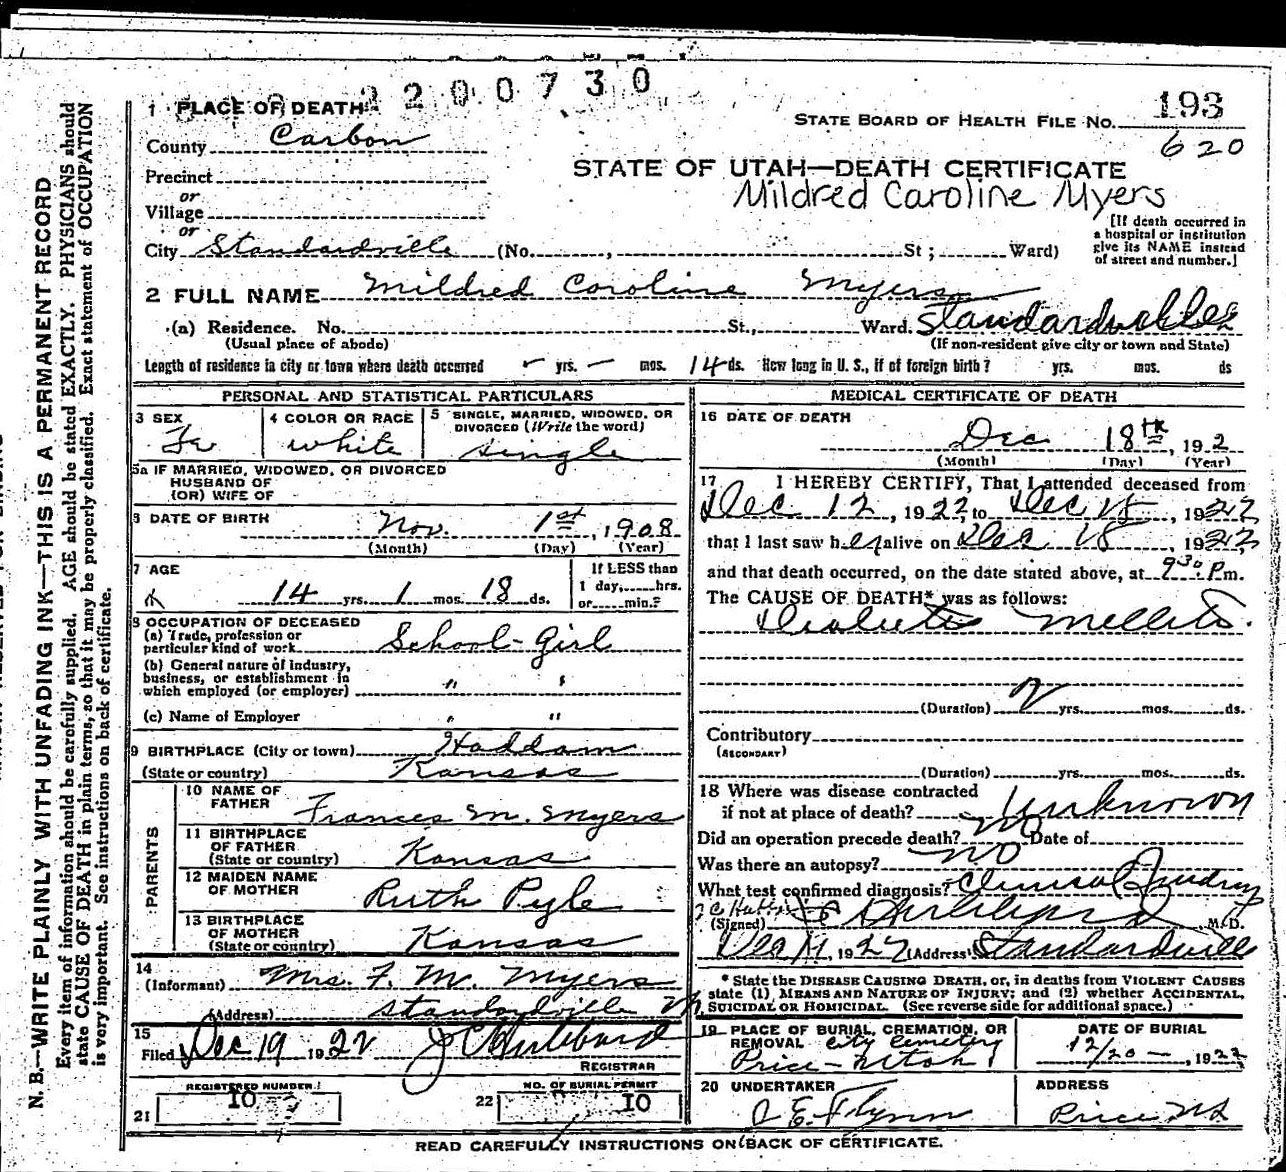 2200730
1 PLACE OF DEATH
County Carbon
STATE BOARD OF HEALTH FILE No. 193
620
Precinct
or
Village
or
STATE OF UTAH—DEATH CERTIFICATE
Mildred Caroline Myers
[If death occurred in
a hospital or institution
give its NAME instead
of street and number.]
City Standardville (No. , St ; Ward)
2 FULL NAME Mildred Caroline Myers
(a) Residence. No. St., Ward. Standardville
(Usual place of abode) (If non-resident give city or town and State)
Length of residence in city or town where death occurred - yrs. - mos. 14 ds. How long in U. S., if of foreign birth? yrs. mos. ds
PERSONAL AND STATISTICAL PARTICULARS
3 SEX
Fe
4 COLOR OR RACE
white
5 SINGLE, MARRIED, WIDOWED, OR
DIVORCED (Write the word)
single
5a IF MARRIED, WIDOWED, OR DIVORCED
HUSBAND OF
(OR) WIFE OF
6 DATE OF BIRTH Nov. 1st, 1908
(Month) (Day) (Year)
7 AGE
14 yrs. 1 mos. 18 ds.
If LESS than
1 day, hrs.
or min.?
8 OCCUPATION OF DECEASED
(a) Trade, profession or
particular kind of work School-Girl
(b) General nature of industry,
business, or establishment in
which employed (or employer) " "
(c) Name of Employer " "
9 BIRTHPLACE (City or town) Haddam
(State or country) Kansas
PARENTS
10 NAME OF
FATHER Frances M. Myers
11 BIRTHPLACE
OF FATHER
(State or country) Kansas
12 MAIDEN NAME
OF MOTHER Ruth Pyle
13 BIRTHPLACE
OF MOTHER
(State or country) Kansas
14
(Informant) Mrs. F. M. Myers
(Address) Standardville
15
Filed Dec 19 1922 J C Hubbard
REGISTRAR
REGISTERED NUMBER
21 10
NO. OF BURIAL PERMIT
22 10
MEDICAL CERTIFICATE OF DEATH
16 DATE OF DEATH
Dec 18th, 192
(Month) (Day) (Year)
17 I HEREBY CERTIFY, That I attended deceased from
Dec 12, 1922, to Dec 18, 1922
that I last saw her alive on Dec 18, 1922,
and that death occurred, on the date stated above, at 9 30 P.m.
The CAUSE OF DEATH* was as follows:
Diabetes Mellitus.
(Duration) 2 yrs. mos. ds.
Contributory
(SECONDARY)
(Duration) yrs. mos. ds.
18 Where was disease contracted
if not at place of death? Unknown
Did an operation precede death? no Date of
Was there an autopsy? no
What test confirmed diagnosis?
(Signed) M.D.
1922 (Address) Standardville
* State the DISEASE CAUSING DEATH, or, in deaths from VIOLENT CAUSES
state (1) MEANS AND NATURE OF INJURY; and (2) whether ACCIDENTAL,
SUICIDAL OR HOMICIDAL. (See reverse side for additional space.)
19 PLACE OF BURIAL, CREMATION, OR
REMOVAL City Cemetery
Price - Utah
DATE OF BURIAL
12/20 -, 1922
20 UNDERTAKER
J E Flynn
ADDRESS
Price Ut
READ CAREFULLY INSTRUCTIONS ON BACK OF CERTIFICATE.
N. B.—WRITE PLAINLY WITH UNFADING INK—THIS IS A PERMANENT RECORD
Every item of information should be carefully supplied. AGE should be stated EXACTLY. PHYSICIANS should
state CAUSE OF DEATH in plain terms, so that it may be properly classified. Exact statement of OCCUPATION
is very important. See instructions on back of certificate.